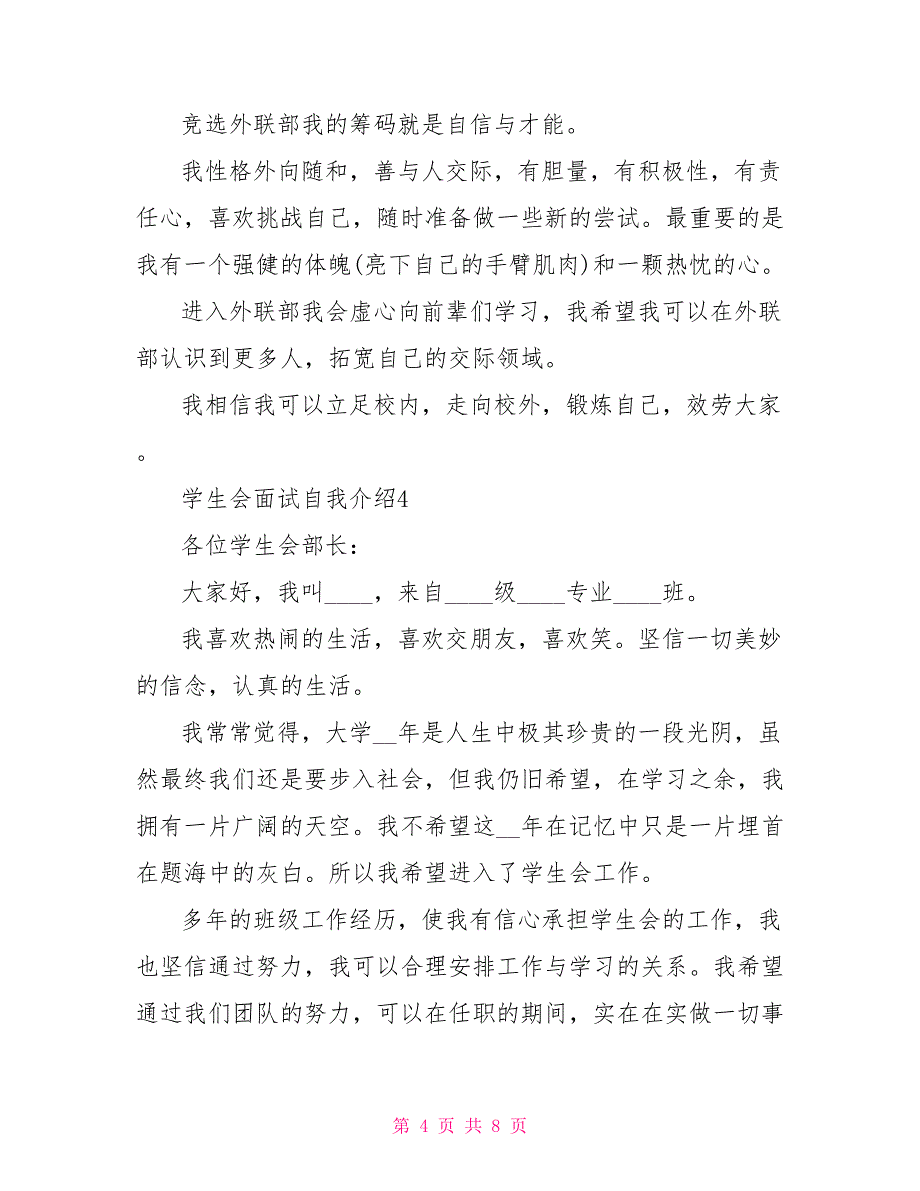 竞选外联部我的筹码就是自信与才能。
我性格外向随和，善与人交际，有胆量，有积极性，有责
任心，喜欢挑战自己，随时准备做一些新的尝试。最重要的是
我有一个强健的体魄(亮下自己的手臂肌肉)和一颗热忱的心。
进入外联部我会虚心向前辈们学习，我希望我可以在外联
部认识到更多人，拓宽自己的交际领域。
我相信我可以立足校内，走向校外，锻炼自己，效劳大家
。
学生会面试自我介绍4
各位学生会部长：
大家好，我叫____，来自____级____专业____班。
我喜欢热闹的生活，喜欢交朋友，喜欢笑。坚信一切美妙
的信念，认真的生活。
我常常觉得，大学__年是人生中极其珍贵的一段光阴，虽
然最终我们还是要步入社会，但我仍旧希望，在学习之余，我
拥有一片广阔的天空。我不希望这__年在记忆中只是一片埋首
在题海中的灰白。所以我希望进入了学生会工作。
多年的班级工作经历，使我有信心承担学生会的工作，我
也坚信通过努力，我可以合理安排工作与学习的关系。我希望
通过我们团队的努力，可以在任职的期间，实在在实做一切事
第 4 页 共 8 页